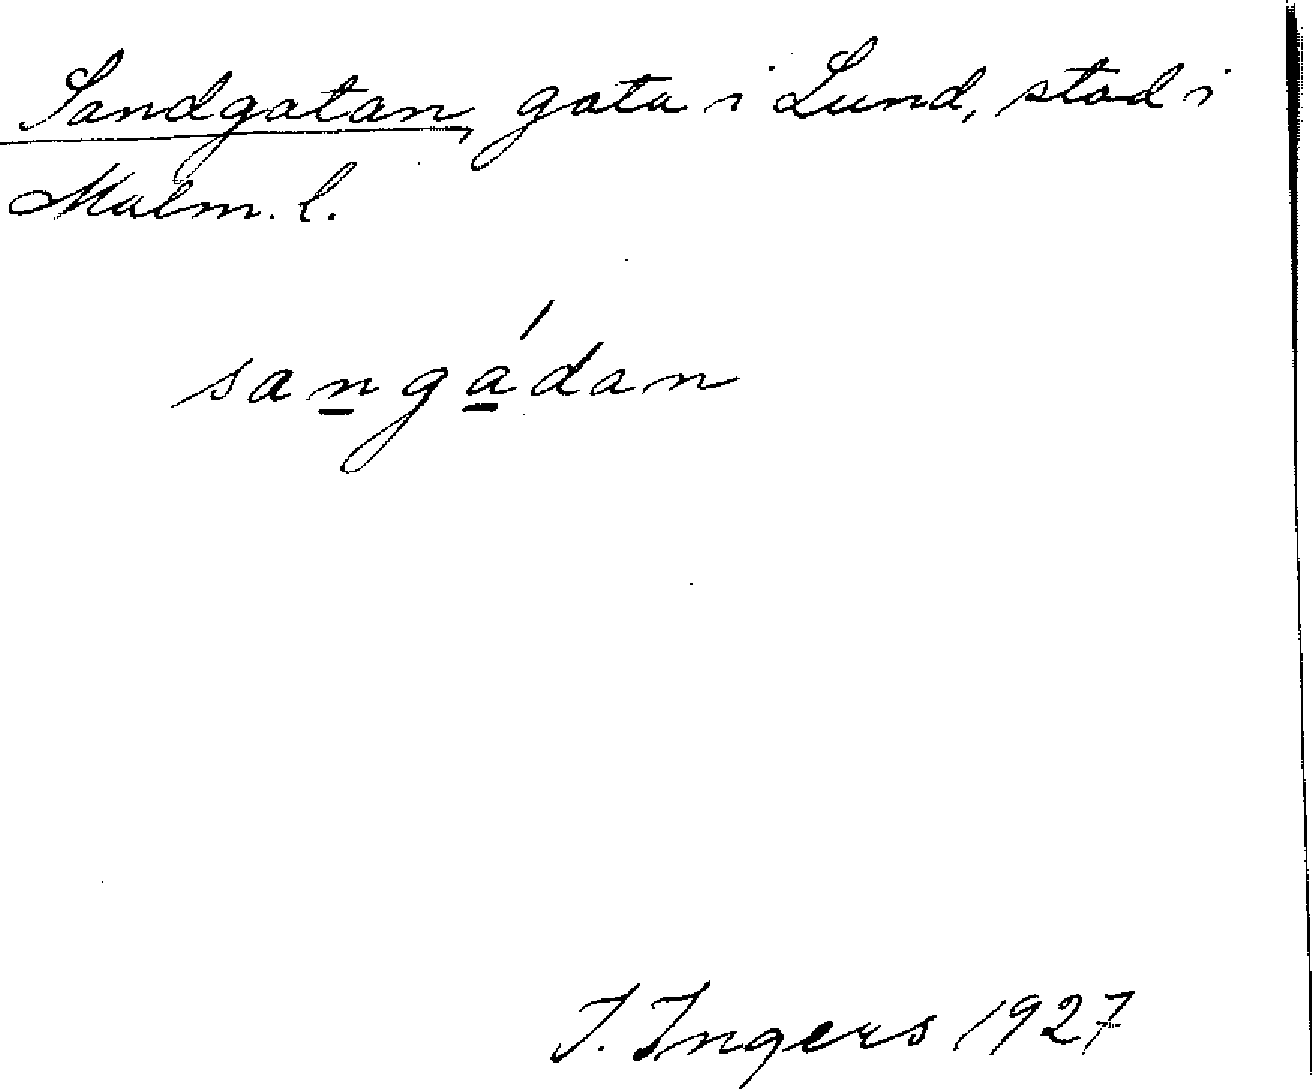 Sandgatan, gata i Lund, stad i
Malm. l.
sangádan
I. Ingers 1927